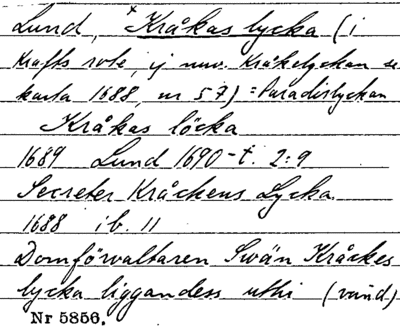 Lund, *Kråkas lycka (i
Krafts rote, ej nuv. Kråkelyckan se
karta 1688, nr 57) = Paradislyckan
Kråkas löcka
1689 Lund 1690-t. 2:9
Secreter Kråckens Lycka
1688 ib. 11
Domförvaltaren Swän Kråckes
lycka liggandess uthi (vänd)
Nr 5856.